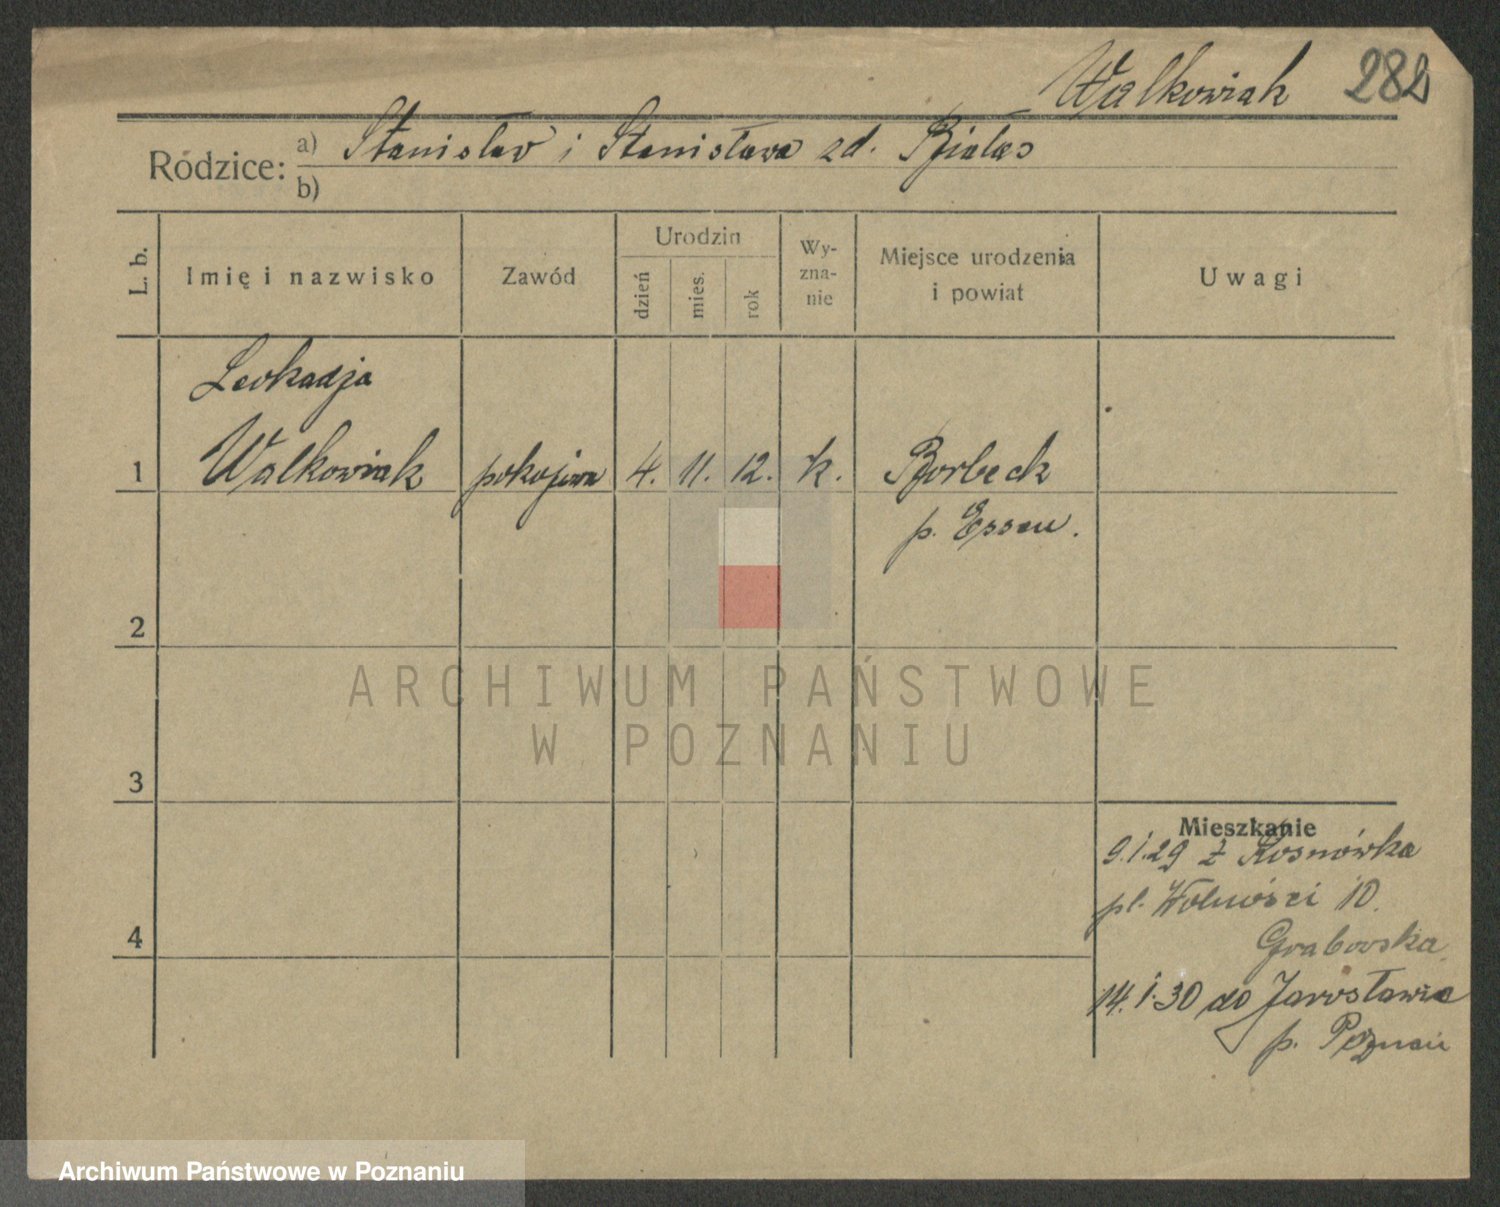 Walkowiak 282
Rodzice: a) Stanisław i Stanisława zd. Białas
b)
L. b.
Imię i nazwisko
Zawód
Urodzin
dzień
mies.
rok
Wy-
zna-
nie
Miejsce urodzenia
i powiat
Uwagi
Leokadja
1 Walkowiak pokojowa 4. 11. 12. k. Borbeck
p. Essen.
2
ARCHIWUM PAŃSTWOWE
W POZNANIU
3
Mieszkanie
9.I.29 z Rosnówka
pl. Wolności 10.
Grabowska
4
14.I.30 do Jarosławic
p. Poznań
Archiwum Państwowe w Poznaniu